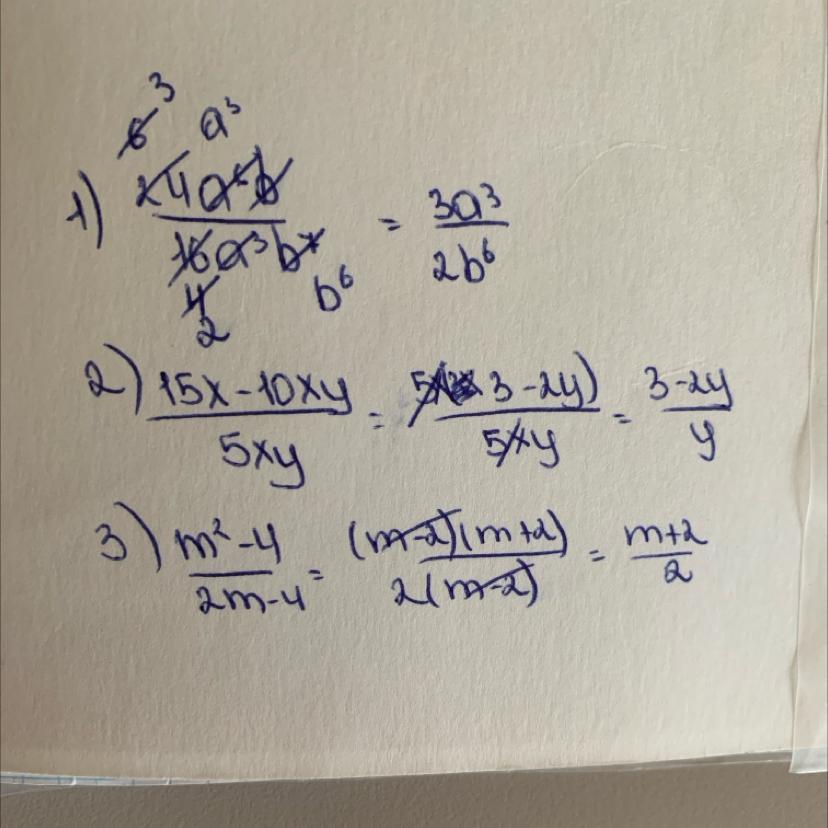 6 3 a³
1) 24a⁶b / 16a³b⁷ = 3a³ / 2b⁶
4 b⁶
2
2) 15x-10xy / 5xy = 5x(3-2y) / 5xy = 3-2y / y
3) m²-4 / 2m-4 = (m-2)(m+2) / 2(m-2) = m+2 / 2